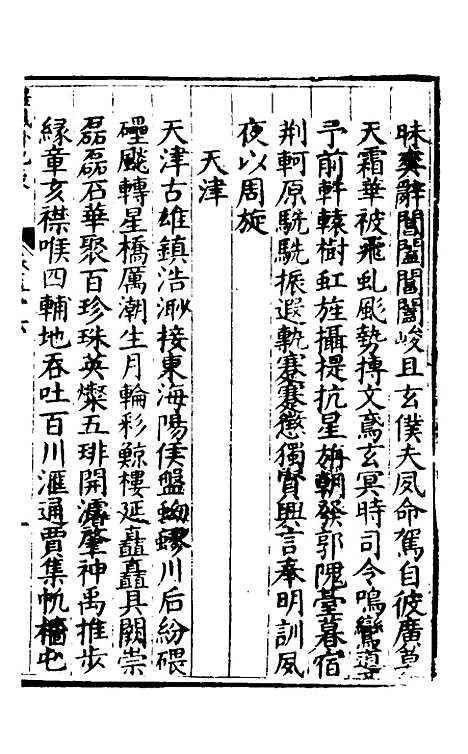 昧爽辭閶闔閶闔峻且玄僕夫夙命駕自彼廣莫
天霜華被飛虬颷勢摶文鳶玄冥時司令鳴鸞道
予前軒轅樹虹旌攝提抗星旃朝發郭隗臺暮宿
荆軻原駪駪振遐軌蹇蹇懲獨賢興言奉明訓夙
夜以周旋
天津
天津古雄鎮浩渺接東海陽侯盤蚴蟉川后紛碨
礧颷轉星橋厲潮生月輪彩鯨樓延矗矗具闕崇
磊磊石華聚百珍珠英燦五琲開濬肇神禹推步
緣章亥襟喉四輔地吞吐百川滙通賈集帆檣屯